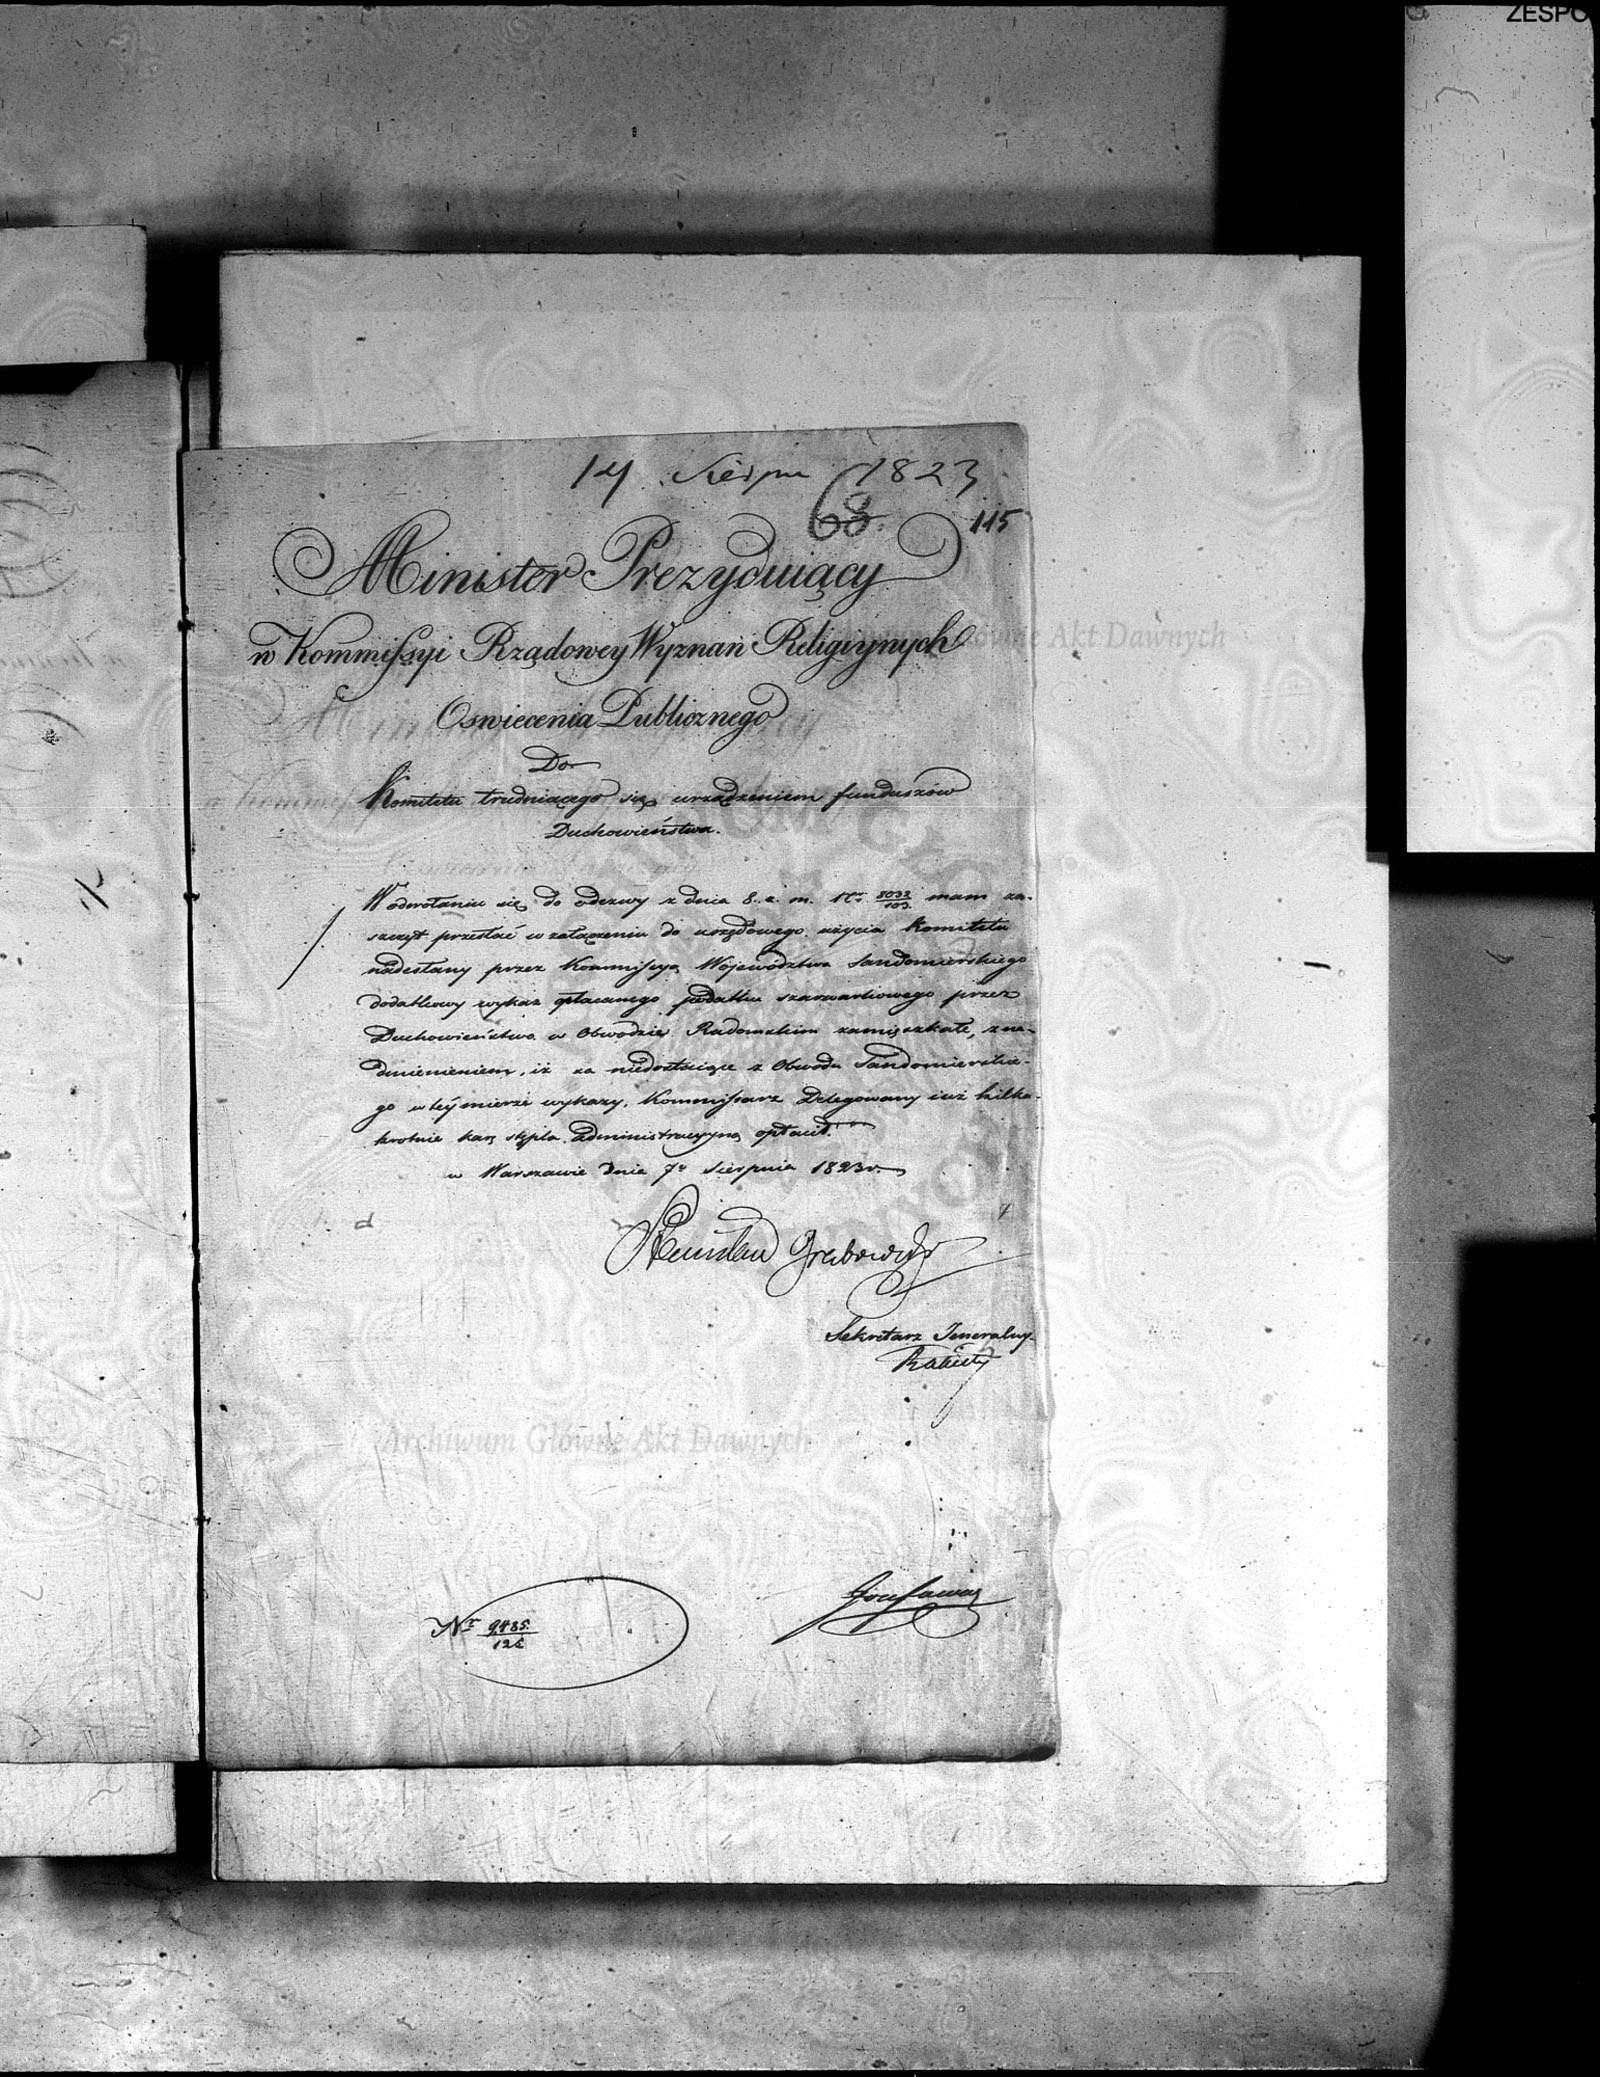 ZESPO
14 Sierpn 1823
68.
115
Minister Prezyduiący
w Kommissyi Rządowey Wyznań Religiynych
Oswiecenia Publicznego
Do
Komitetu trudniącego się urządzeniem funduszów
Duchowieństwa.
W odwołaniu się do odezwy z dnia 8. z. m. Nr 8032/103. mam za-
szczyt przesłać w załączeniu do urzędowego użycia Komitetu
nadesłany przez Kommissyą Województwa Sandomierskiego
dodatkowy wykaz opłacanego podatku szarwarkowego przez
Duchowieństwo w Obwodzie Radomskim zamięszkałe, z na-
dmienieniem, iż za niedostaiące z Obwodu Sandomierskie-
go w tey mierze wykazy, Kommissarz Delegowany iuż kilka-
krotnie karę stępla administracyyną opłacił.
w Warszawie dnia 7o Sierpnia 1823 r.
Stanisław Grabowski
Sekretarz Jeneralny
Nr 9485/126
Archiwum Główne Akt Dawnych